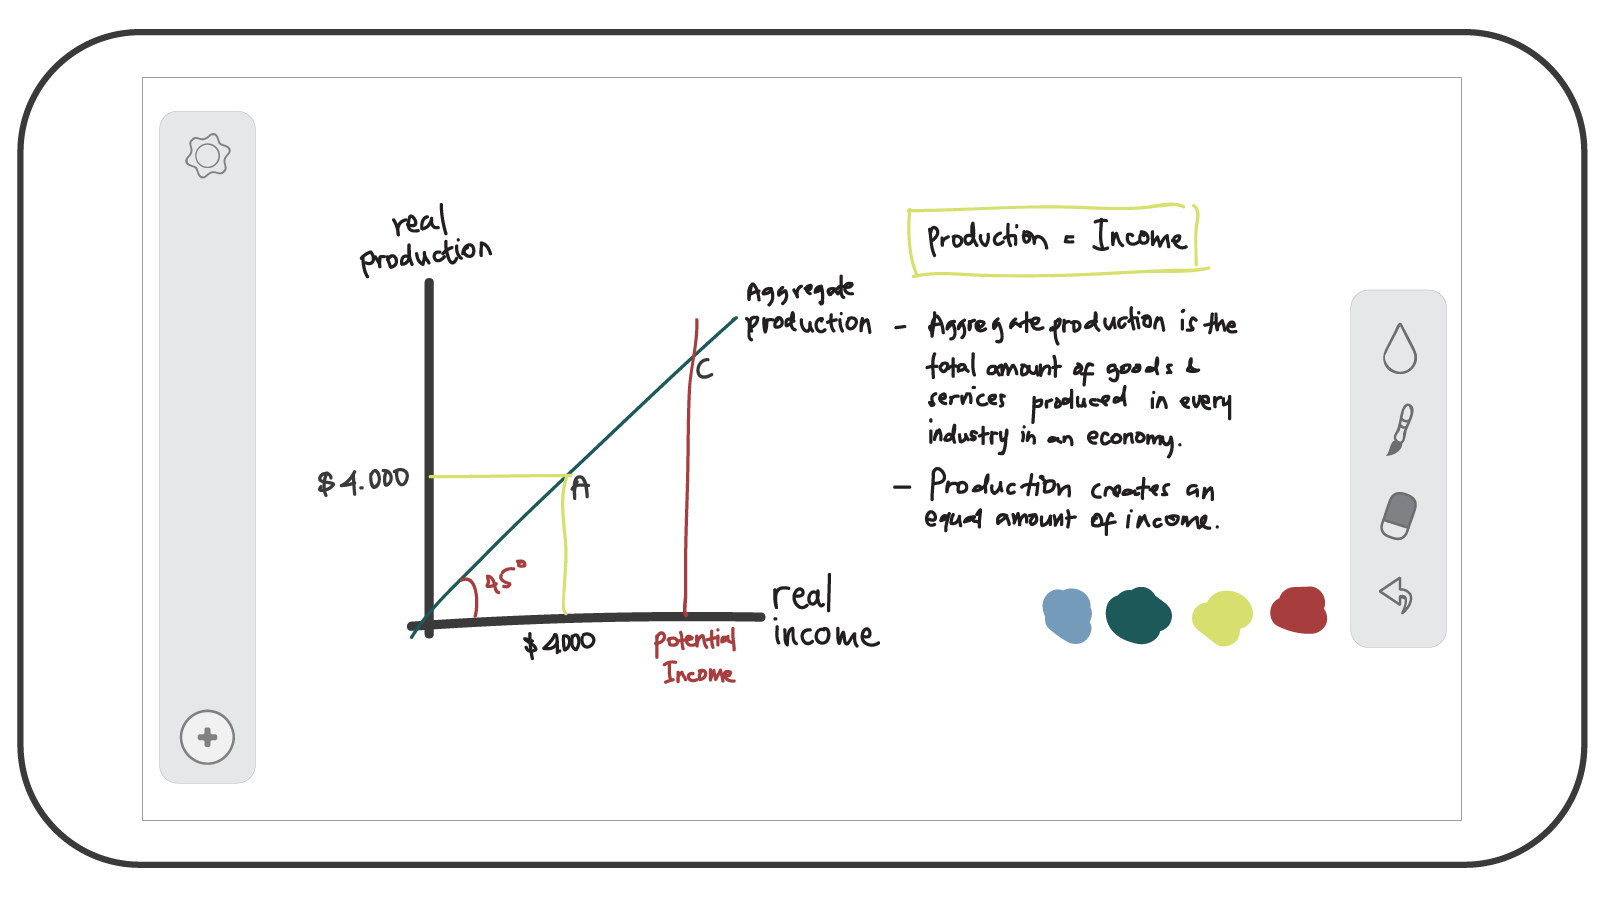 real
production
Aggregate
production
$4.000
A
C
45°
$4000
Potential
Income
real
income
Production = Income
- Aggregate production is the
total amount of goods &
services produced in every
industry in an economy.
- Production creates an
equal amount of income.